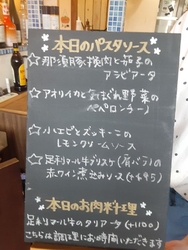 本日のパスタソース
☆那須豚挽肉と茄子の
アラビアータ
☆アオリイカと 野菜の
ペペロンチーノ
☆小エビとズッキーニの
レモンクリームソース
☆足利マール牛ブリスケ(肩バラ)の
赤ワイン煮込みソース(+¥495)
本日のお肉料理
足利マール牛のクリアータ(+1100)
こちらは調理にお時間いただきます